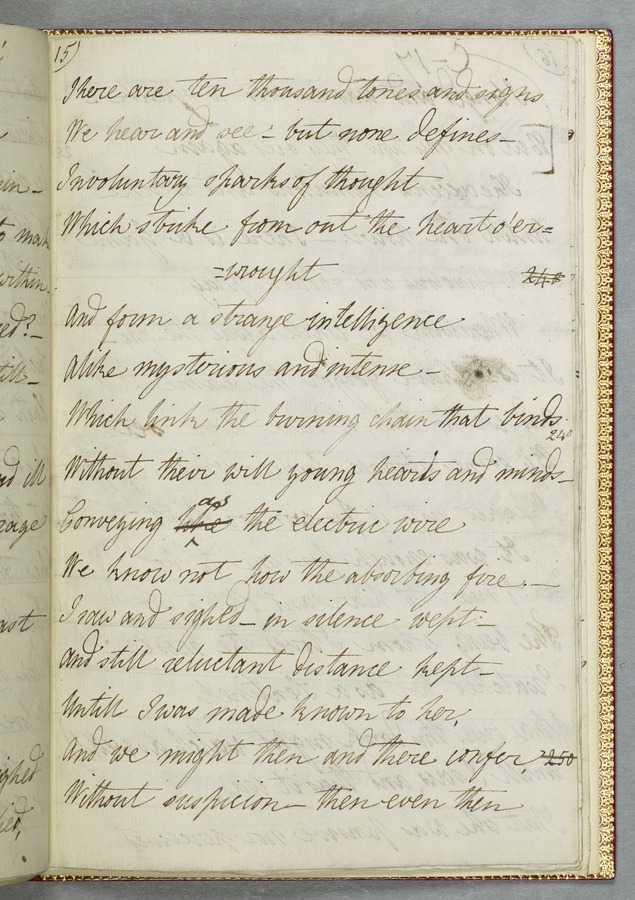 15)
There are ten thousand tones and signs
We hear and see – but none defines –
Involuntary sparks of thought
Which strike from out the heart o'er=
=wrought
And form a strange intelligence
Alike mysterious and intense –
Which link the burning chain that binds
240
Without their will young hearts and minds –
as
Conveying like the electric wire
We know not how the absorbing fire. —
I saw and sighed – in silence wept –
And still reluctant distance kept –
Untill I was made known to her,
And we might then and there confer, 250
Without suspicion – then even then